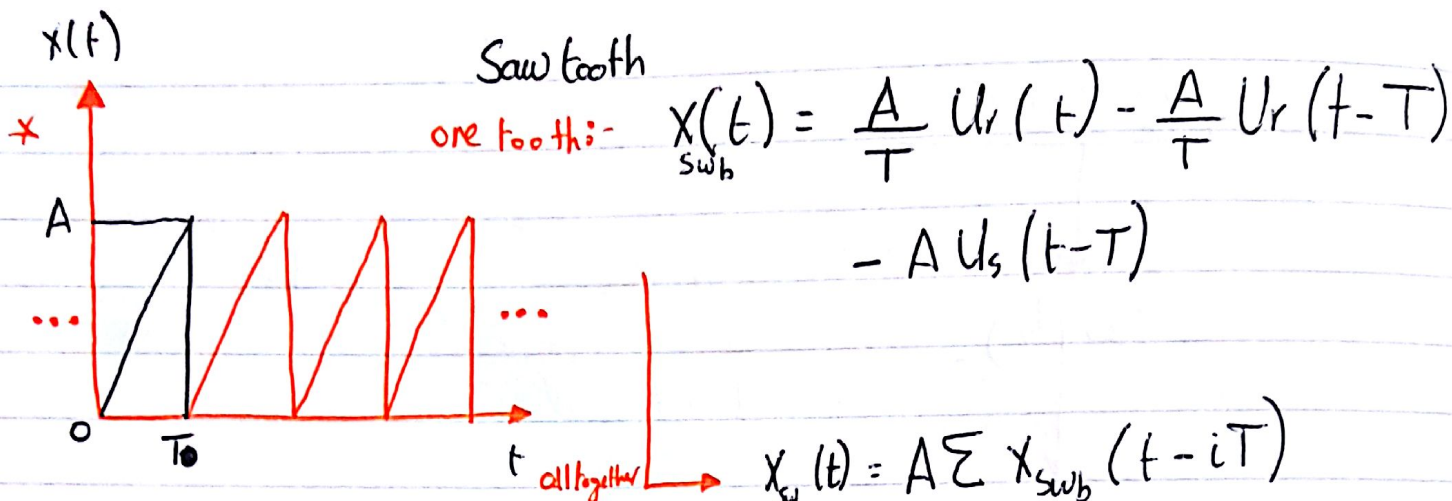 x(t)
Saw tooth
* one tooth:- x_swb(t) = A/T Ur(t) - A/T Ur(t-T)
- A Us(t-T)
A
... ...
0 T0 t
all together x_sw(t) = A Σ x_swb(t-iT)